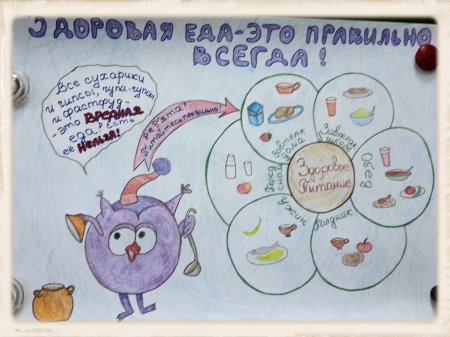 ЗДОРОВАЯ ЕДА-ЭТО ПРАВИЛЬНО
ВСЕГДА!
Все сухарики
и чипсы, чупа-чупсы
и фастфуд -
-это ВРЕДНАЯ
еда! Есть
её Нельзя!
Ребята!
Питайтесь правильно!
Здоровое
Питание
Завтрак
дома
Завтрак
в школе
Обед
Полдник
Ужин
Перед
сном